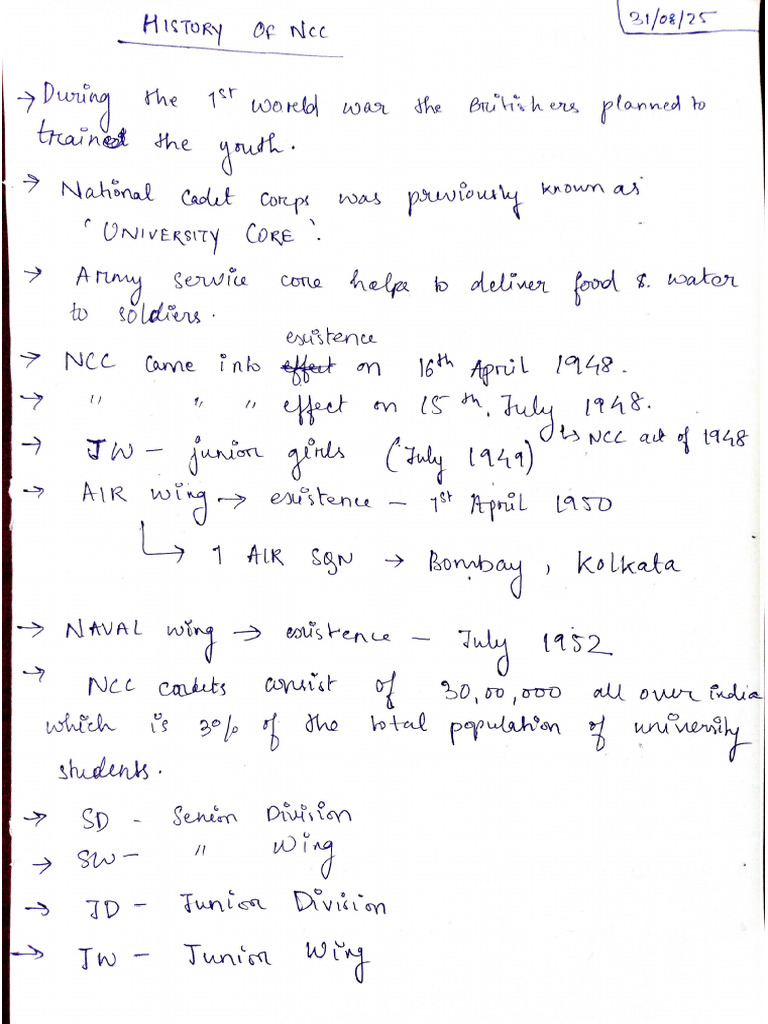 HISTORY OF NCC
31/08/25
→ During the 1st world war the Britishers planned to
trained the youth.
→ National Cadet Corps was previously known as
'UNIVERSITY CORE'.
→ Army service core helps to deliver food & water
to soldiers.
existence
→ NCC came into effect on 16th April 1948.
→ " " " effect on 15th July 1948.
↳ NCC act of 1948
→ JW – junior girls (July 1949)
→ AIR wing → existence – 1st April 1950
↳ 1 AIR SQN → Bombay, Kolkata
→ NAVAL wing → existence – July 1952
→ NCC cadets consist of 30,00,000 all over india
which is 30% of the total population of university
students.
→ SD – Senior Division
→ SW – " Wing
→ JD – Junior Division
→ JW – Junior Wing